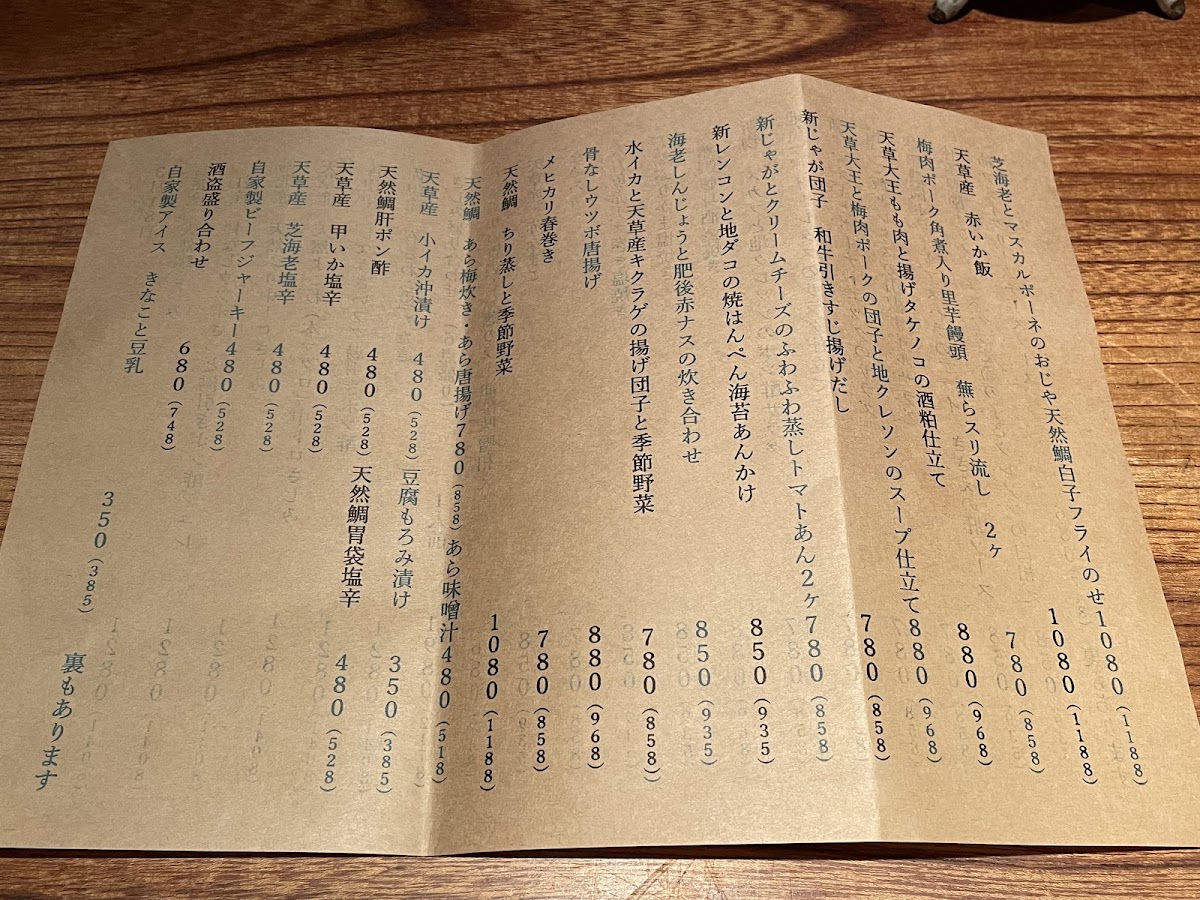 芝海老とマスカルポーネのおじや天然鯛白子フライのせ1080(1188)
天草産 赤いか飯 1080(1188)
梅肉ポーク角煮入り里芋饅頭 蕪らスリ流し 2ヶ 780(858)
天草大王もも肉と揚げタケノコの酒粕仕立て 880(968)
天草大王と梅肉ポークの団子と地クレソンのスープ仕立て880(968)
新じゃが団子 和牛引きすじ揚げだし 780(858)
新じゃがとクリームチーズのふわふわ蒸しトマトあん2ヶ780(858)
新レンコンと地ダコの焼はんぺん海苔あんかけ 850(935)
海老しんじょうと肥後赤ナスの炊き合わせ 850(935)
水イカと天草産キクラゲの揚げ団子と季節野菜 780(858)
骨なしウツボ唐揚げ 880(968)
メヒカリ春巻き 780(858)
天然鯛 ちり蒸しと季節野菜 1080(1188)
天然鯛 あら梅炊き・あら唐揚げ780(858)あら味噌汁480(518)
天草産 小イカ沖漬け 480(528)豆腐もろみ漬け 350(385)
天然鯛肝ポン酢 480(528)天然鯛胃袋塩辛 480(528)
天草産 甲いか塩辛 480(528)
天草産 芝海老塩辛 480(528)
自家製ビーフジャーキー480(528)
酒盗盛り合わせ 680(748)
自家製アイス きなこと豆乳 350(385)
裏もあります